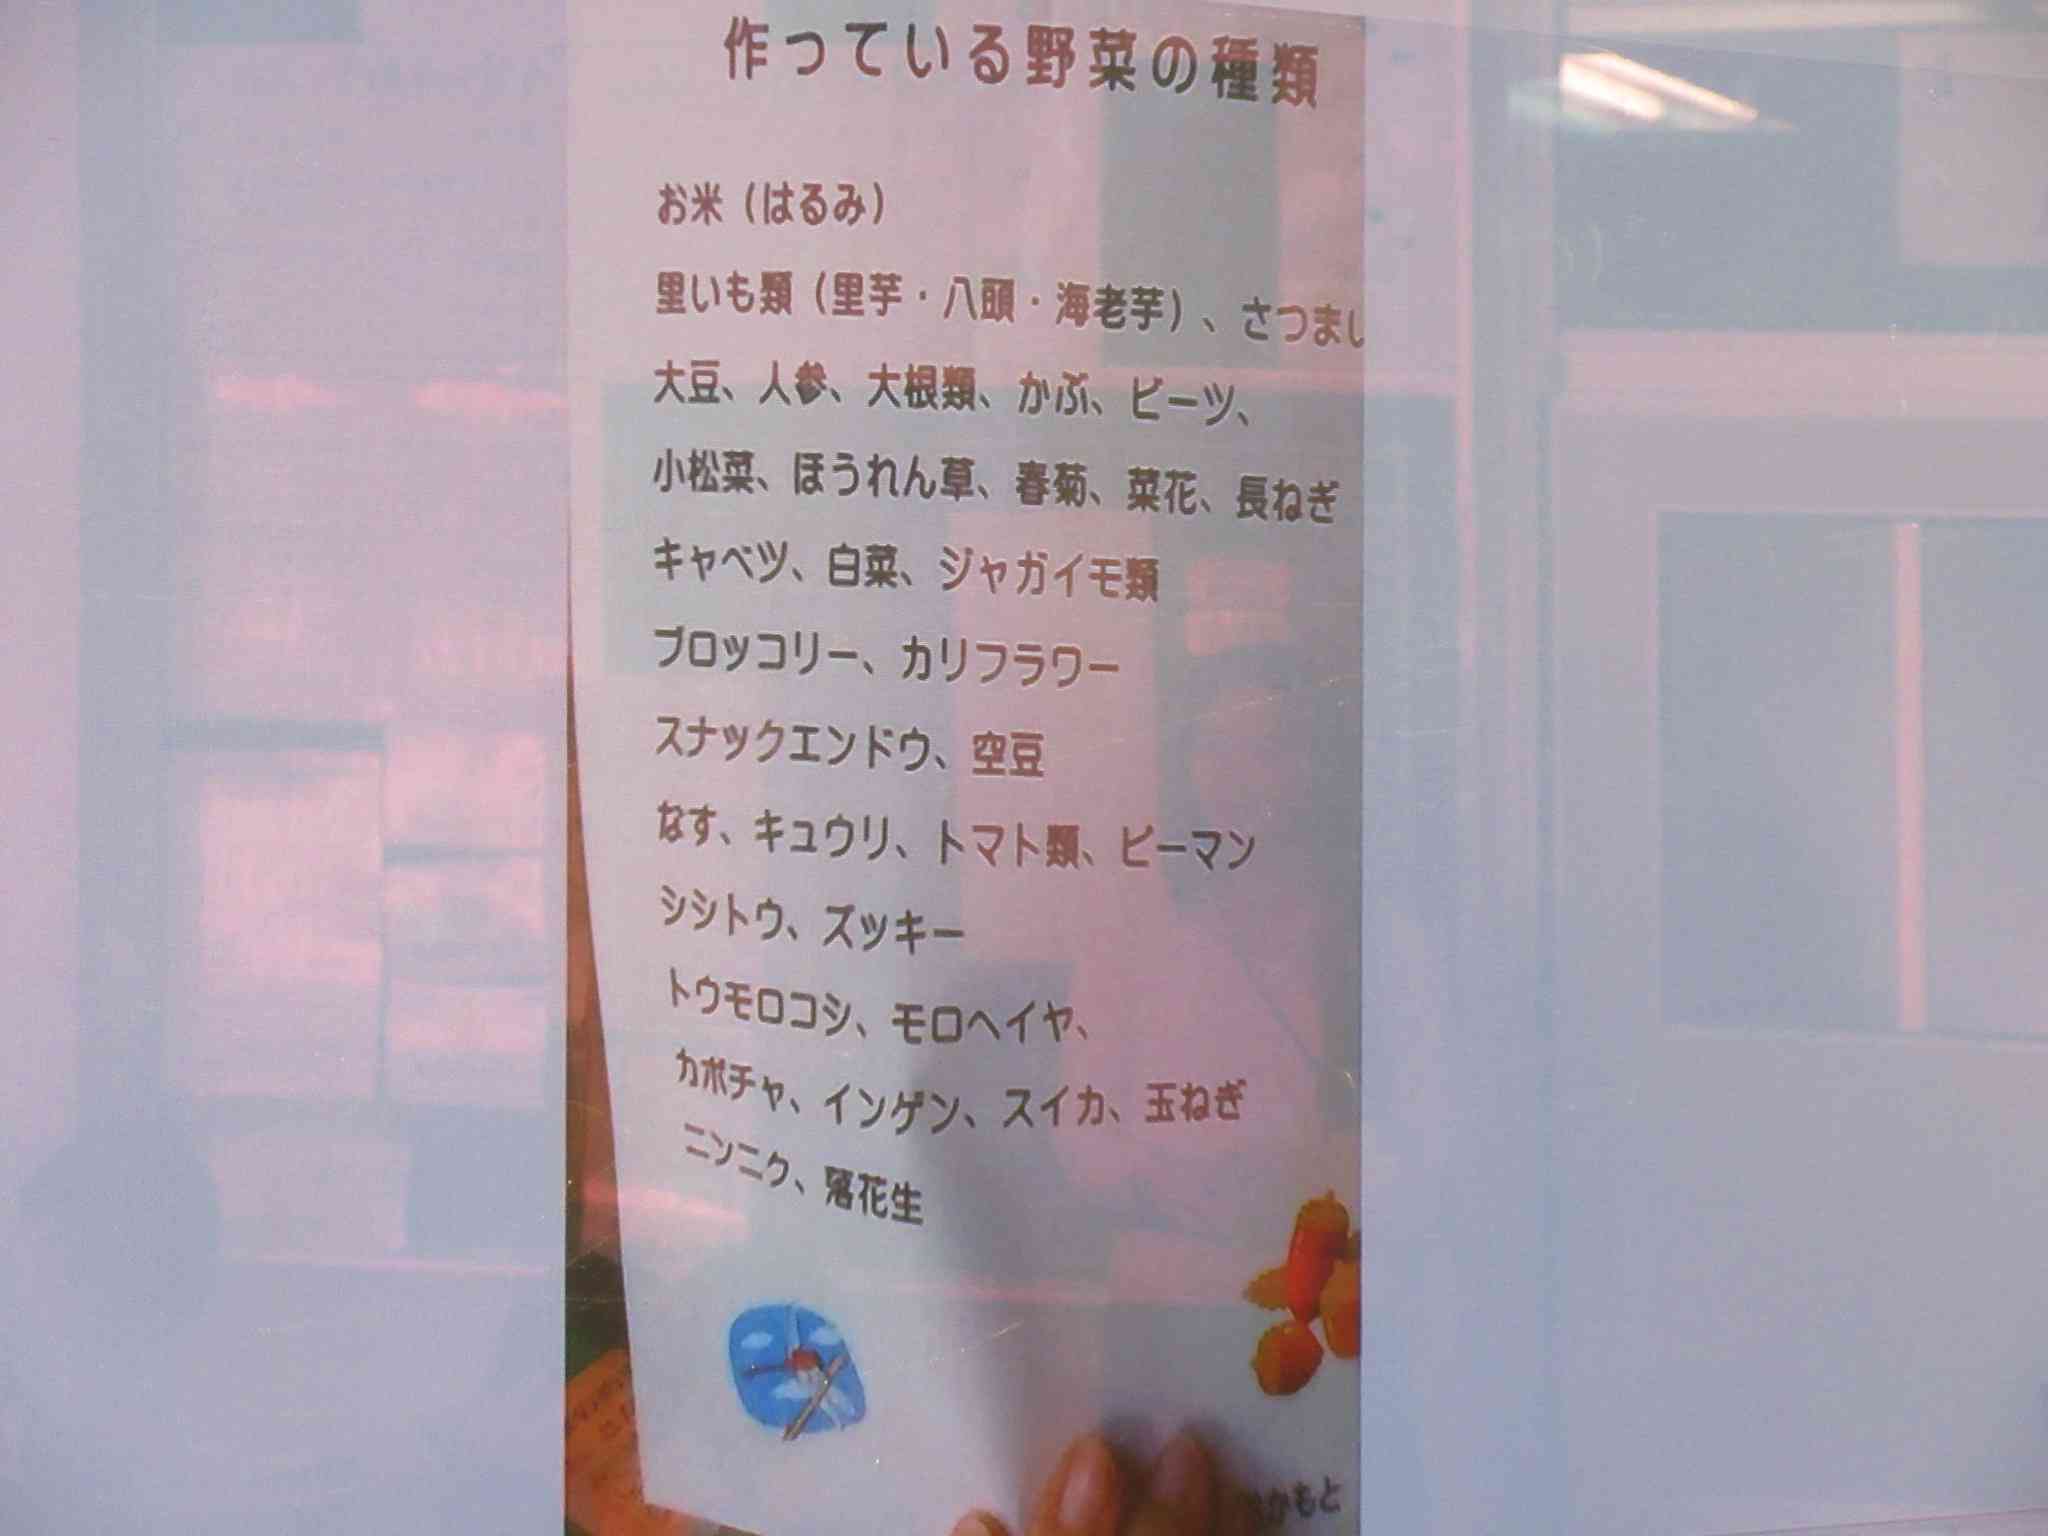 作っている野菜の種類
お米（はるみ）
里いも類（里芋・八頭・海老芋）、さつまい
大豆、人参、大根類、かぶ、ビーツ、
小松菜、ほうれん草、春菊、菜花、長ねぎ
キャベツ、白菜、ジャガイモ類
ブロッコリー、カリフラワー
スナックエンドウ、空豆
なす、キュウリ、トマト類、ピーマン
シシトウ、ズッキー
トウモロコシ、モロヘイヤ、
カボチャ、インゲン、スイカ、玉ねぎ
ニンニク、落花生
かもと